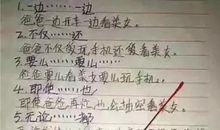 1.一边……一边
爸爸一边开车一边看美女。
2.不仅……还
爸爸不仅仅玩手机还看美女。
3.要么……要么
爸爸要么看美女要么玩手机。
4.即使……也
即使爸爸再忙,也会抽空看美女。
5.无论……都